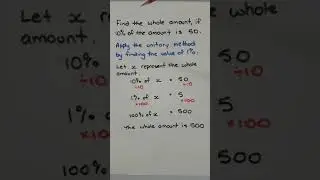 Find the whole amount, if
10% of the amount is 50.
Apply the unitary method
by finding the value of 1%.
Let x represent the whole
amount
10% of x = 50
÷10 ÷10
1% of x = 5
×100 ×100
100% of x = 500
The whole amount is 500
10%
50
÷10
1%
5
×100
100%
500